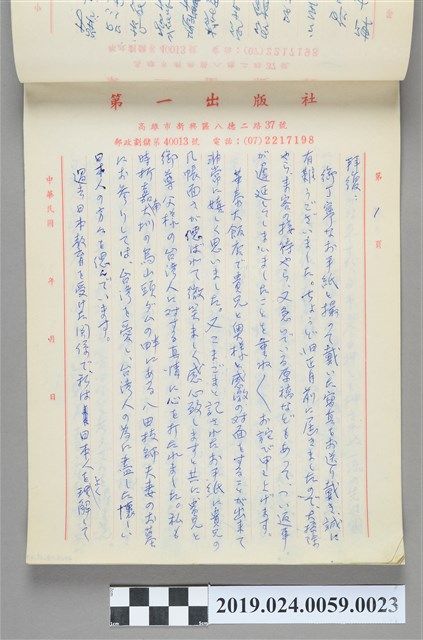 第一出版社
高雄市新興區八德二路37號
郵政劃儲第40013號 電話：(07)2217198
第 1 頁
拝復：
御丁寧なお手紙と撮って戴いた写真をお送り戴き誠に
有難うございました。ちょうど旧正月前に届きましたので、大掃除
やら、来客の接待やら、又急いでいる原稿などもあって、つい返事
が遅延してしまいましたことを重ね〱お詫び申し上げます。
華泰大飯店で貴兄と奥様と感激の対面をすることが出来て
非常に嬉しく思いました。又こまごまと記されたお手紙に貴兄の
几帳面さが偲ばれて微笑ましく感心致しますと共に貴兄と
御尊父様の台湾人に対する真情に心を打たれました。私も
時折嘉南大圳の烏山頭ダムの畔にある八田技師夫妻のお墓
にお参りしては、台湾を愛し、台湾人の為に盡した懐しい
日本人の方々を偲んでいます。
過去日本教育を受けた関係で、私は日本人をよく理解して
中華民國 年 月 日
2019.024.0059.0023